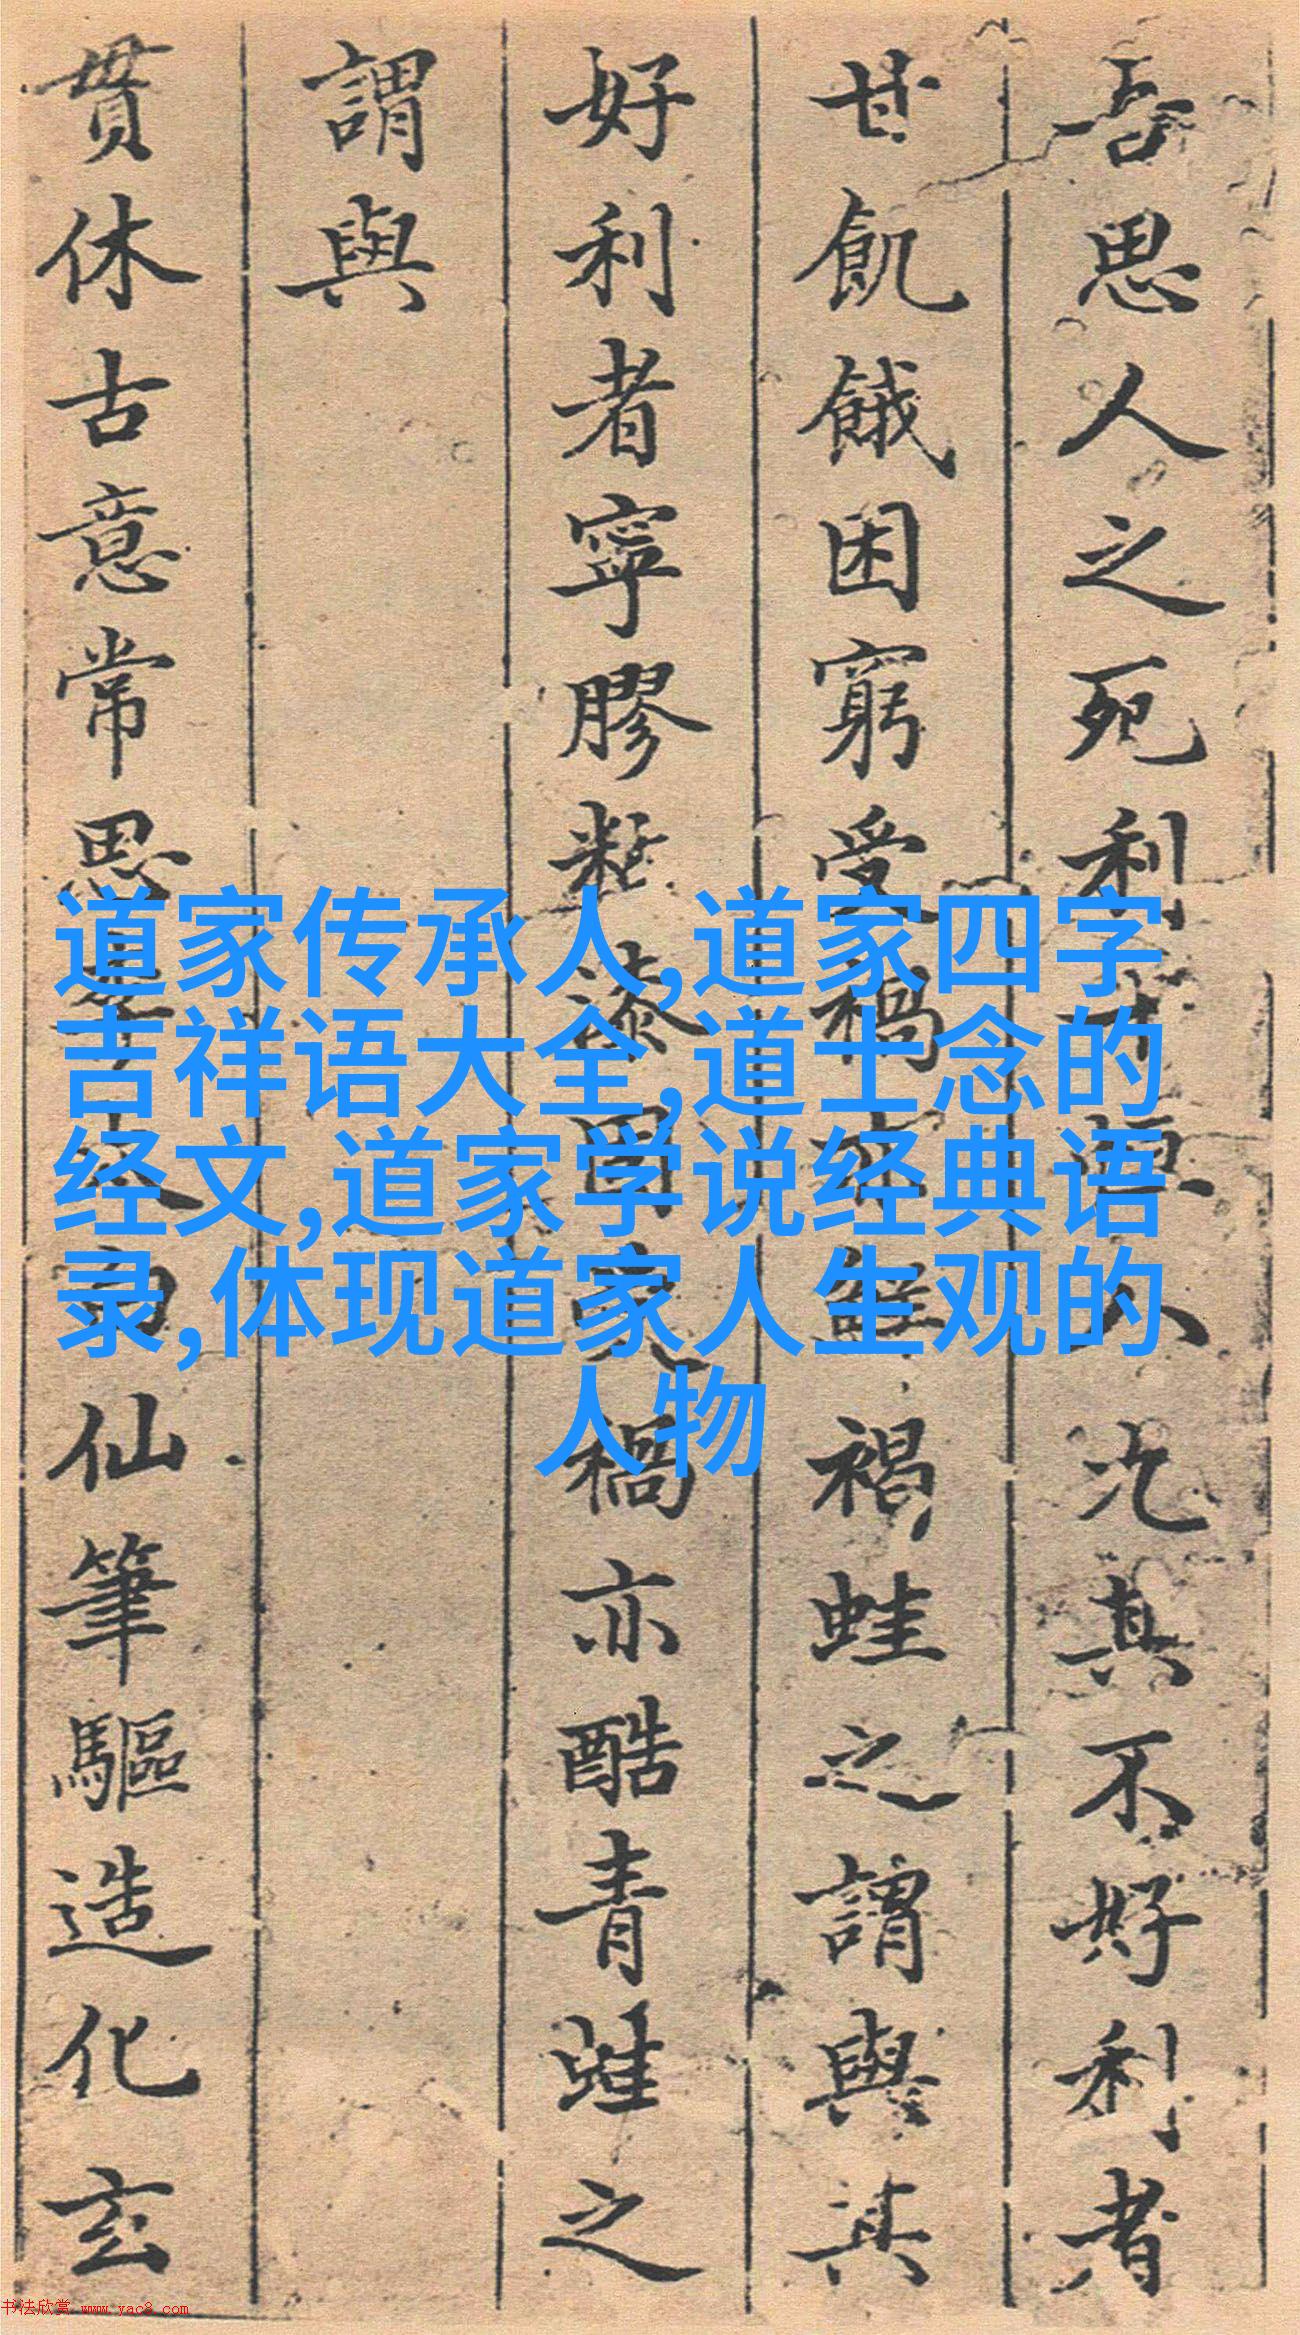 吾思人之死利
人况其不好利者
甘飢餓困窮受禍亦
褐蛙之謂與其
好利者寧膠粘漆固
禍亦酷青蛙之
謂與
贯休古意常思
仙筆驅造化玄
道家传承人,道家四字
吉祥语大全,道士念的
经文,道家学说经典语
录,体现道家人生观的
人物
书法欣赏 www.yac8.com